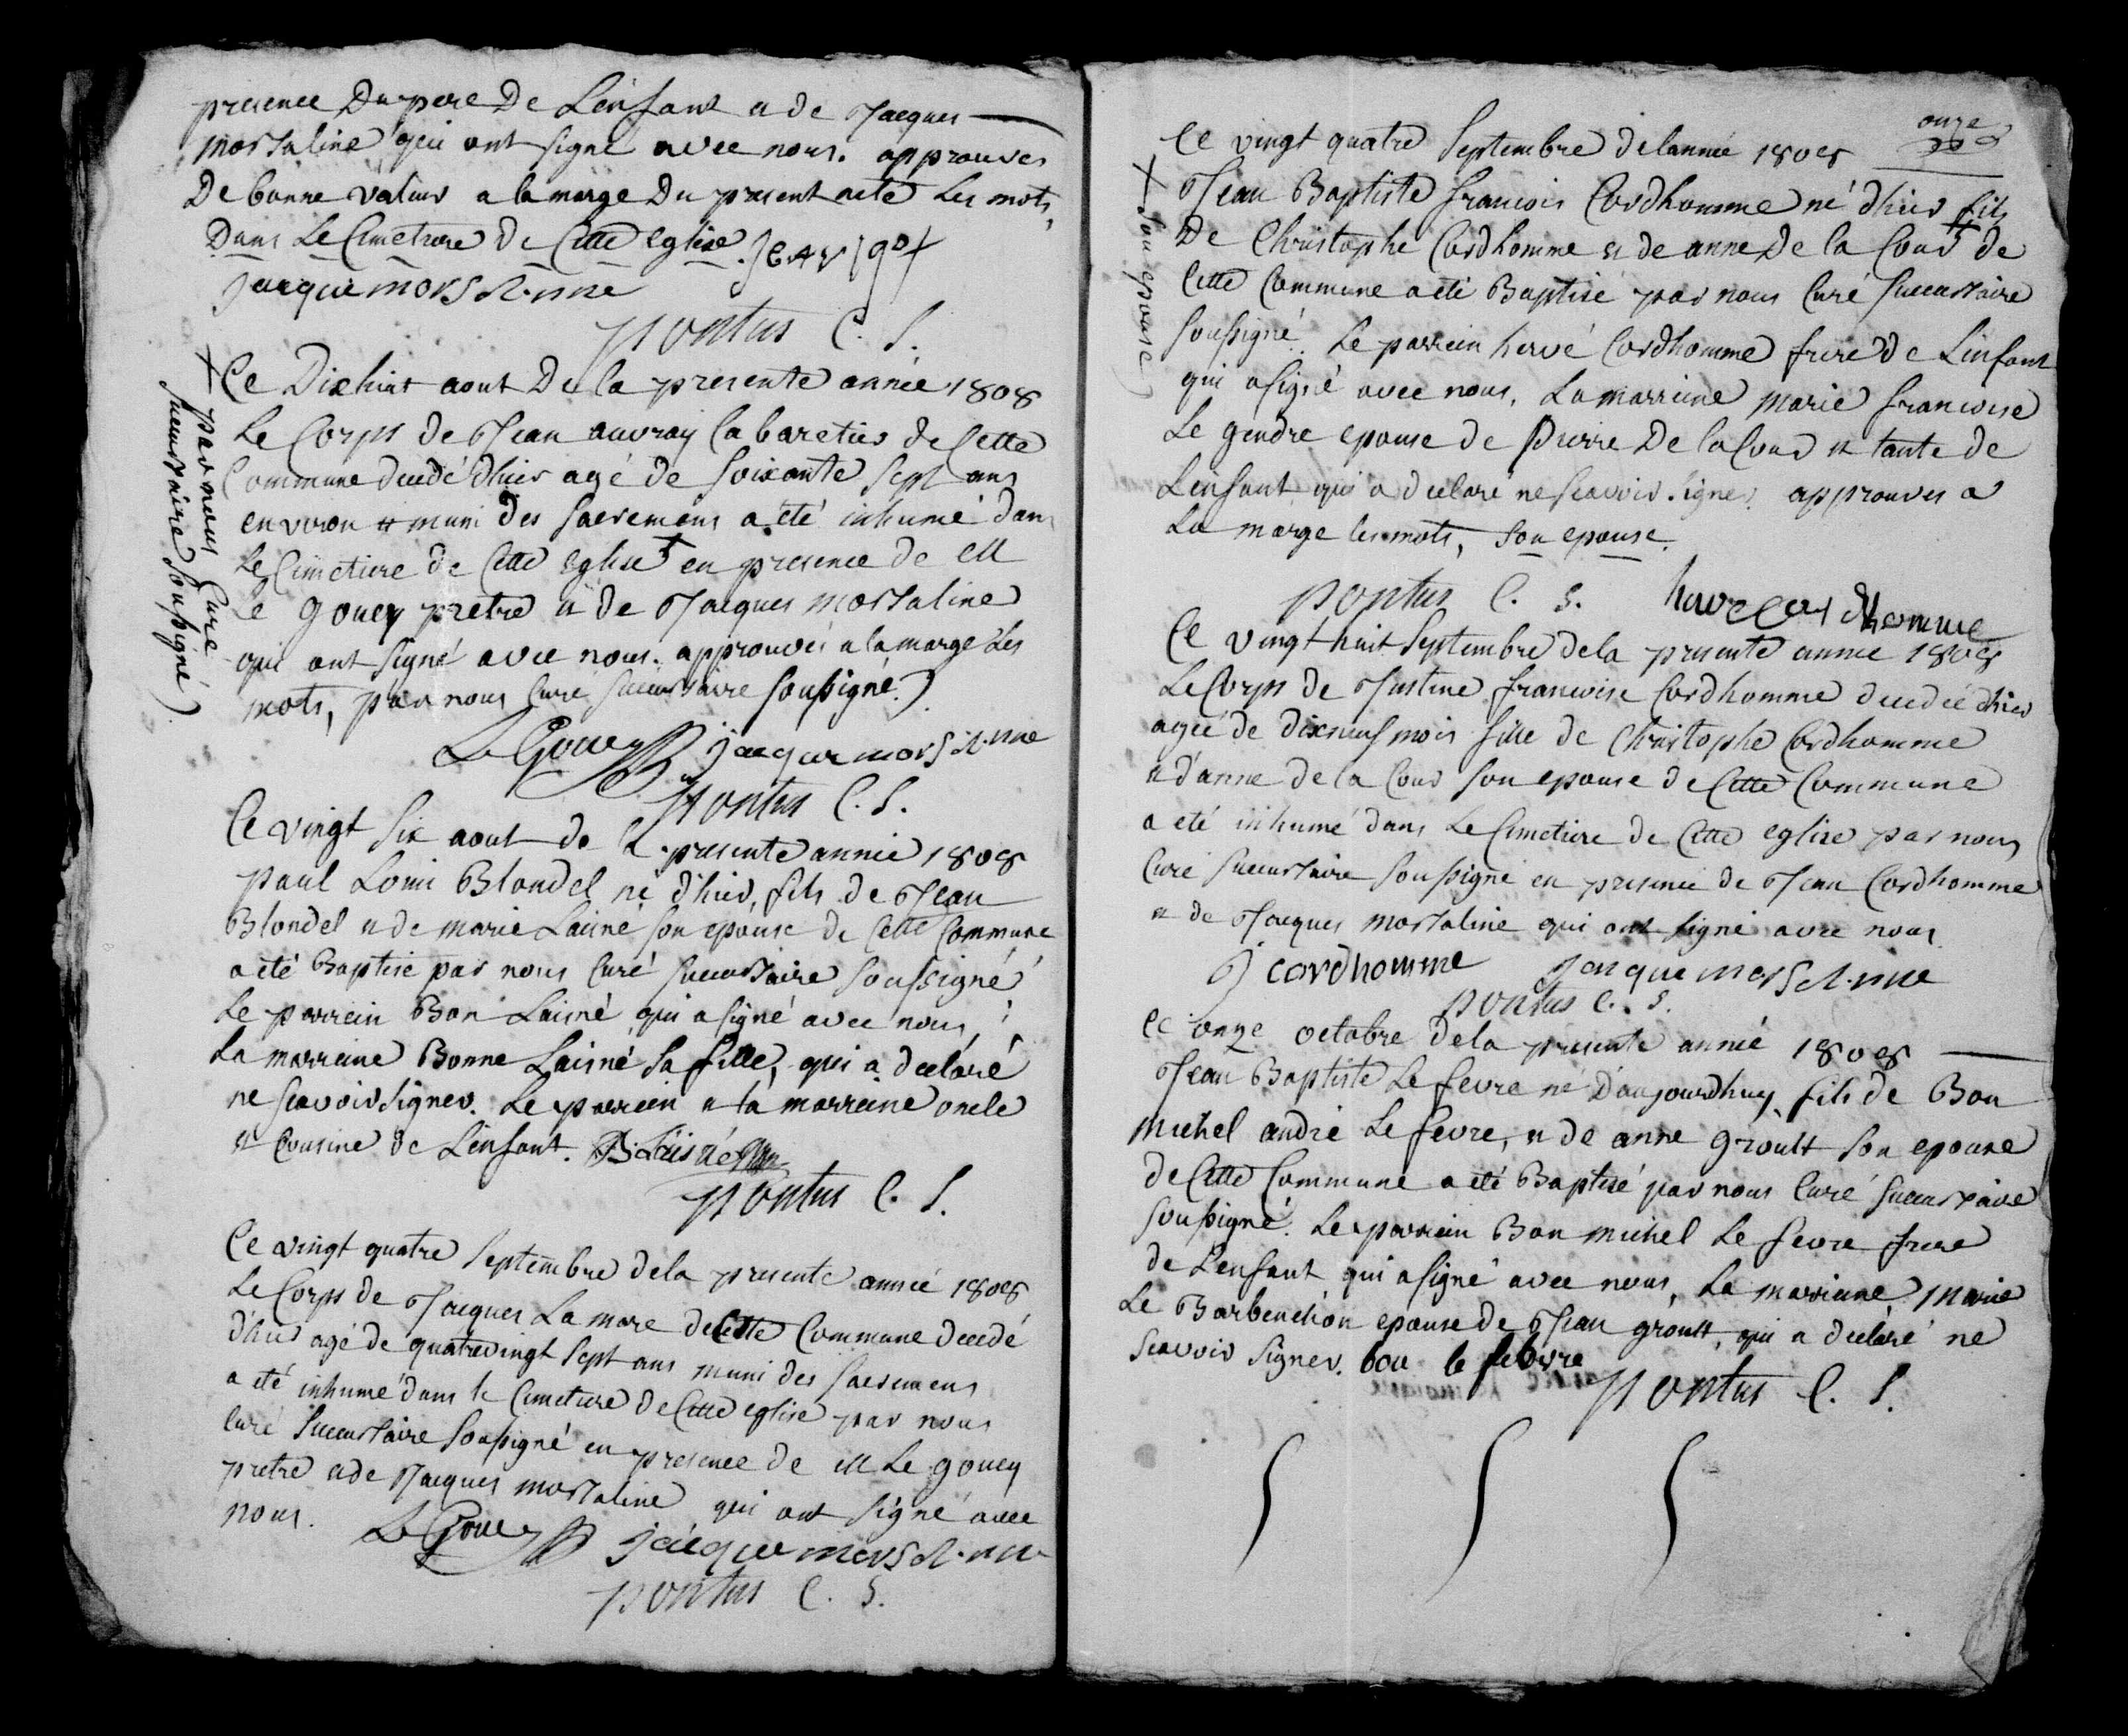 presence Du pere De L'enfant et de Jacques
mostaline qui ont signé avec nous. approuves
De bonne valeur a la marge Du present acte Les mots,
Dans Le Cimetiere de Cette eglise.
jacque
pontus C. S.
Ce Dixhuit aout De la presente année 1808
Le Corps de Jean auvray Cabaretier de Cette
Commune decedé d'hier agé de soixante sept ans
environ et muni des sacremens a été inhumé dans
Le Cimetiere de Cette eglise + en presence de M
Le gouey pretre et de Jacques mostaline
qui ont signé avec nous. approuvés a la marge Les
mots, par nous Curé succursaire soussigné.)
+ par nous Curé
succursaire soussigné)
Le Gouey jacque
pontus C. S.
Ce vingt six aout de la presente année 1808
paul Louis Blondel né d'hier, fils de Jean
Blondel et de marie Laisné son epouse de Cette Commune
a eté Baptisé par nous Curé succursaire soussigné
Le parrein Bon Laisné qui a signé avec nous,
La marreine Bonne Laisné sa fille, qui a declaré
ne scavoir signer. Le parrein et la marreine oncle
et Cousine de L'enfant. B. Laisné
pontus C. S.
Ce vingt quatre septembre de la presente année 1808
Le Corps de Jacques La mare de Cette Commune decedé
d'hier agé de quatrevingt sept ans muni des sacremens
a été inhumé dans le Cimetiere de Cette eglise par nous
Curé succursaire soussigné en presence de M Le gouey
pretre et de Jacques mostaline qui ont signé avec
nous. Le Gouey jacque
pontus C. S.
onze
Ce vingt quatre septembre de l'année 1808
Jean Baptiste francois Cordhomme né d'hier fils
De Christophe Cordhomme et de anne De la Cour + de
Cette Commune a eté Baptisé par nous Curé succursaire
soussigné. Le parrein hervé Cordhomme frere de L'enfant
qui a signé avec nous, La marreine marie francoise
Le gendre epouse de pierre De la Cour et tante de
L'enfant qui a declaré ne scavoir signer. approuves a
La marge les mots, son epouse.
+ son epouse)
pontus C. S. herve Cordhomme
Ce vingt huit septembre de la presente année 1808
Le Corps de Justine francoise Cordhomme decedée d'hier
agée de dixneuf mois fille de Christophe Cordhomme
et d'anne de la Cour son epouse de Cette Commune
a eté inhumé dans Le Cimetiere de Cette eglise par nous
Curé succursaire soussigné en presence de Jean Cordhomme
et de Jacques mostaline qui ont signé avec nous
J cordhomme jacque
pontus C. S.
Ce onze octobre de la presente année 1808
Jean Baptiste Le fevre né D'aujourdhuy, fils de Bon
michel andré Le fevre, et de anne groult son epouse
de Cette Commune a eté Baptisé par nous Curé succursaire
soussigné. Le parrein Bon michel Le fevre frere
de L'enfant qui a signé avec nous, La marreine, marie
Le Barbenchon epouse de Jean groult, qui a declaré ne
scavoir signer. bon le febvre
pontus C. S.